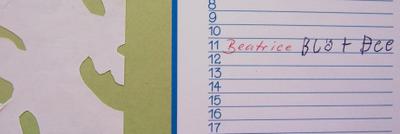 8
9
10
11 Beatrice Blö + Dee
12
13
14
15
16
17